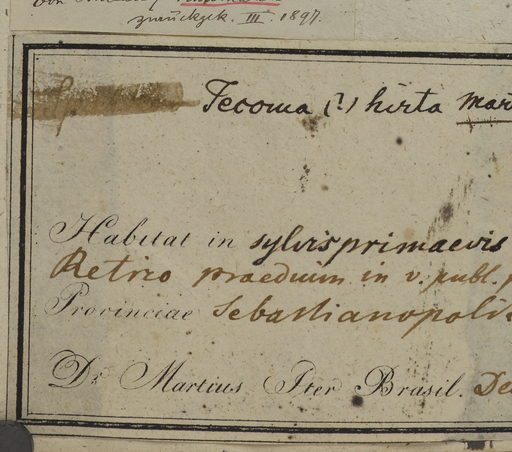 zurückgek. III. 1897.
Tecoma (?) hirta Mar
Habitat in sylvis primaevis
Retiro praedium in v. publ. p
Provinciae Sebastianopolit
Dr. Martius Iter Brasil. De